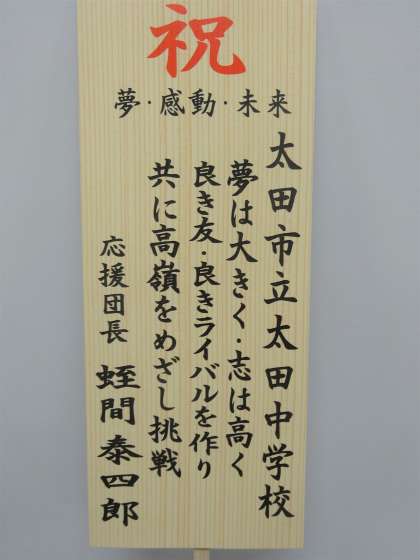 祝
夢・感動・未来
太田市立太田中学校
夢は大きく・志は高く
良き友・良きライバルを作り
共に高嶺をめざし挑戦
応援団長 蛭間泰四郎